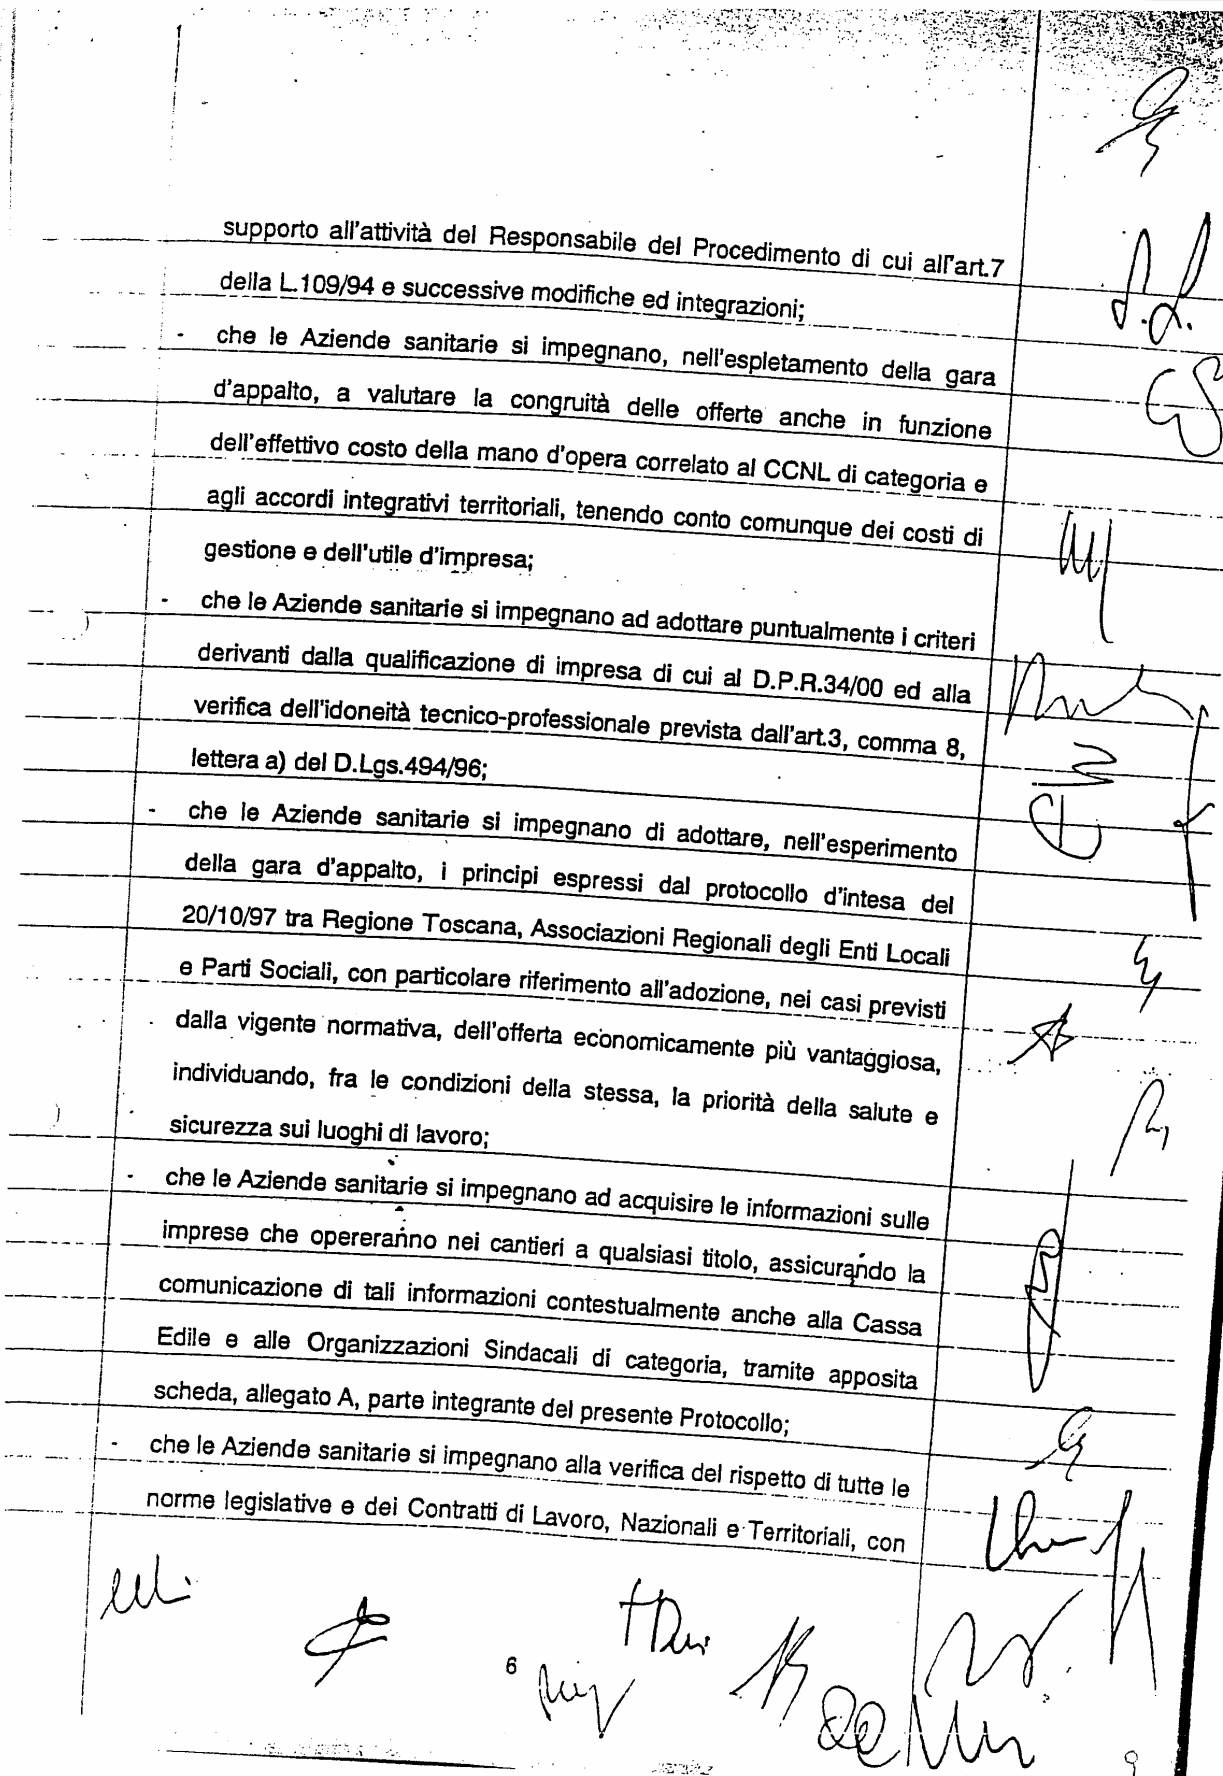 supporto all'attività del Responsabile del Procedimento di cui all'art.7
della L.109/94 e successive modifiche ed integrazioni;
- che le Aziende sanitarie si impegnano, nell'espletamento della gara
d'appalto, a valutare la congruità delle offerte anche in funzione
dell'effettivo costo della mano d'opera correlato al CCNL di categoria e
agli accordi integrativi territoriali, tenendo conto comunque dei costi di
gestione e dell'utile d'impresa;
- che le Aziende sanitarie si impegnano ad adottare puntualmente i criteri
derivanti dalla qualificazione di impresa di cui al D.P.R.34/00 ed alla
verifica dell'idoneità tecnico-professionale prevista dall'art.3, comma 8,
lettera a) del D.Lgs.494/96;
- che le Aziende sanitarie si impegnano di adottare, nell'esperimento
della gara d'appalto, i principi espressi dal protocollo d'intesa del
20/10/97 tra Regione Toscana, Associazioni Regionali degli Enti Locali
e Parti Sociali, con particolare riferimento all'adozione, nei casi previsti
dalla vigente normativa, dell'offerta economicamente più vantaggiosa,
individuando, fra le condizioni della stessa, la priorità della salute e
sicurezza sui luoghi di lavoro;
- che le Aziende sanitarie si impegnano ad acquisire le informazioni sulle
imprese che opereranno nei cantieri a qualsiasi titolo, assicurando la
comunicazione di tali informazioni contestualmente anche alla Cassa
Edile e alle Organizzazioni Sindacali di categoria, tramite apposita
scheda, allegato A, parte integrante del presente Protocollo;
- che le Aziende sanitarie si impegnano alla verifica del rispetto di tutte le
norme legislative e dei Contratti di Lavoro, Nazionali e Territoriali, con
6